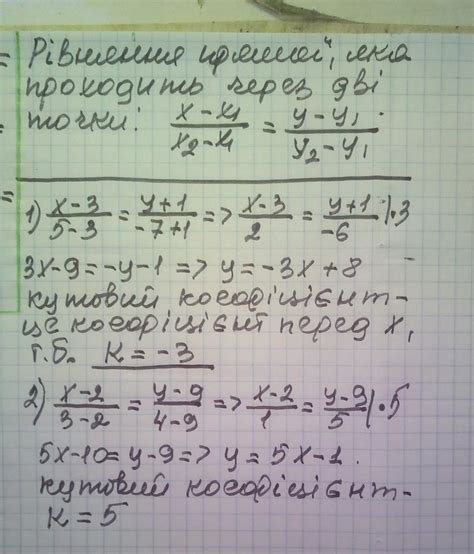 Рівняння прямої, яка
проходить через дві
точки: (x-x₁)/(x₂-x₁) = (y-y₁)/(y₂-y₁)
1) (x-3)/(5-3) = (y+1)/(-7+1) => (x-3)/2 = (y+1)/(-6) |·3
3x-9=-y-1 => y=-3x+8
кутовий коефіцієнт-
це коефіцієнт перед x,
т.б. K = -3
2) (x-2)/(3-2) = (y-9)/(4-9) => (x-2)/1 = (y-9)/5 |·5
5x-10=y-9=> y=5x-1.
кутовий коефіцієнт-
K=5